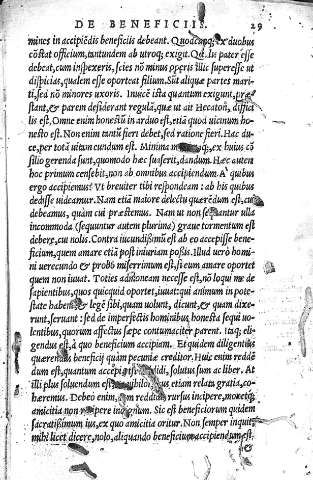 DE BENEFICIIS. 29
mines in accipiēdis beneficiis debeant. Quodcunq; ex duobus
cōstat officium, tantundem ab utroq; exigit. Qui sit pater esse
debeat, cum inspexeris, scies nō minus operis illic superesse ut
dispicias, qualem esse oporteat filium. Sūt aliquæ partes mari-
ti, sed nō minores uxoris. Inuicē ista quantum exigunt, præ
stant, & parem desiderant regulā, quæ ut ait Hecaton, diffici
lis est. Omne enim honestū in arduo est, etiā quod uicinum ho
nesto est. Non enim tantū fieri debet, sed ratione fieri. Hac du
ce, per totā uitam eundum est. Minima ex huius cō
silio gerenda sunt, quomodo hæc suaserit, dandum. Hæc autem
hoc primum censebit, non ab omnibus accipiendum. A quibus
ergo accipiemus? Vt breuiter tibi respondeam: ab his quibus
dedisse uidemur. Nam etiā maiore delectu quærēdum est, cui
debeamus, quàm cui præstemus. Nam ut non sequantur ulla
incommoda (sequuntur autem plurima) graue tormentum est
debere, cui nolis. Contra iucundissimū est ab eo accepisse bene-
ficium, quem amare etiā post iniuriam possis. Illud uerò homi
ni uerecundo & probo miserrimum est, si eum amare oportet
quem non iuuat. Toties admoneam necesse est, nō loqui me de
sapientibus, quos quicquid oportet, iuuat: qui animum in pote-
state habent, & legē sibi, quam uolunt, dicunt, & quam dixe-
runt, seruant: sed de imperfectis hominibus, honesta sequi uo-
lentibus, quorum affectus sæpe contumaciter parent. Itaq; eli-
gendus est, à quo beneficium accipiam. Et quidem diligentius
quærendus beneficij quàm pecuniæ creditor. Huic enim reddē
dum est, quantum accepi: & si reddidi, solutus sum ac liber. At
illi plus soluendum est: & nihilominus etiam relata gratia, co-
hæremus. Debeo enim, cum reddidi, rursus incipere, monetq;
amicitia non recipere indignum. Sic est beneficiorum quidem
sacratissimum ius, ex quo amicitia oritur. Non semper inquit
mihi licet dicere, nolo, aliquando beneficium accipiendum est.